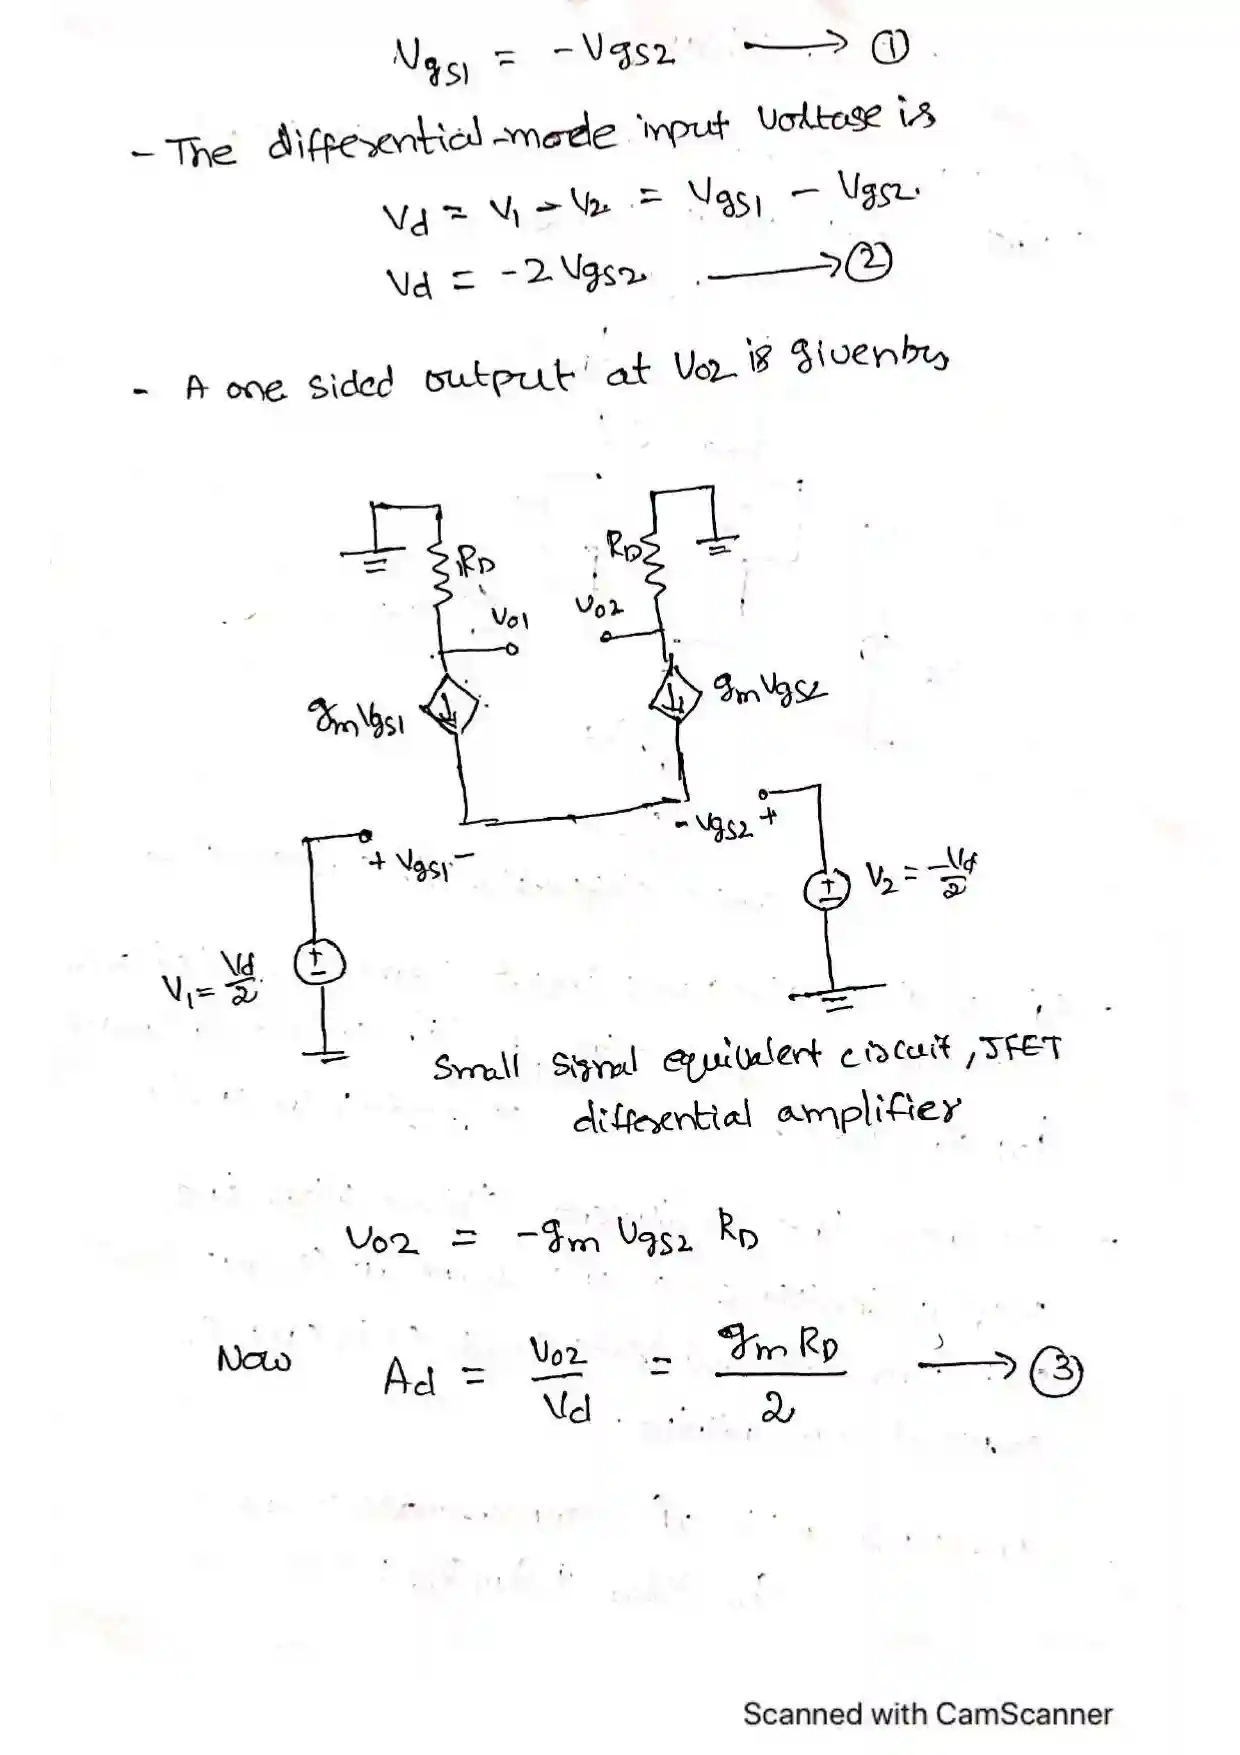 Vgs1 = -Vgs2 → ①
- The differential-mode input voltage is
Vd = V1 - V2 = Vgs1 - Vgs2.
Vd = -2 Vgs2 → ②
- A one sided output at Vo2 is given by
RD
RD
Vo1
Vo2
gmVgs1
gmVgs2
- Vgs2 +
+ Vgs1 -
V2 = -Vd/2
V1 = Vd/2
Small signal equivalent circuit, JFET
differential amplifier
Vo2 = -gm Vgs2 RD
Now Ad = Vo2/Vd = gm RD/2 → ③
Scanned with CamScanner